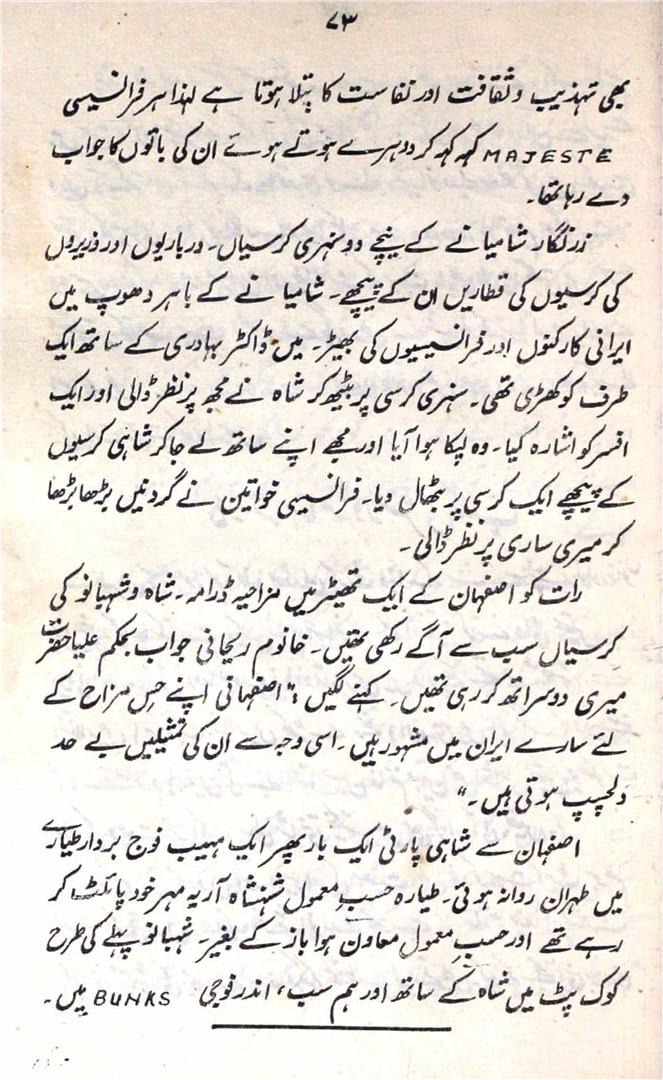 ۷۳
بھی تہذیب و ثقافت اور نفاست کا پتلا ہوتا ہے لہذا ہر فرانسیسی
MAJESTE کہہ کہہ کر دوہرے ہوتے ہوئے ان کی باتوں کا جواب
دے رہا تھا۔
زرنگار شامیانے کے نیچے دو سنہری کرسیاں۔ درباریوں اور وزیروں
کی کرسیوں کی قطاریں ان کے پیچھے۔ شامیانے کے باہر دھوپ میں
ایرانی کارکنوں اور فرانسیسیوں کی بھیڑ۔ میں ڈاکٹر بہادری کے ساتھ ایک
طرف کو کھڑی تھی۔ سنہری کرسی پر بیٹھ کر شاہ نے مجھ پر نظر ڈالی اور ایک
افسر کو اشارہ کیا۔ وہ لپکا ہوا آیا اور مجھے اپنے ساتھ لے جا کر شاہی کرسیوں
کے پیچھے ایک کرسی پر بٹھال دیا۔ فرانسیسی خواتین نے گردنیں بڑھا بڑھا
کر میری ساری پر نظر ڈالی۔
رات کو اصفہان کے ایک تھیٹر میں مزاحیہ ڈرامہ۔ شاہ و شہبانو کی
کرسیاں سب سے آگے رکھی تھیں۔ خانوم ریحانی جواب بحکم علیا حضرت
میری دوسراتھ کر رہی تھیں۔ کہنے لگیں: "اصفہانی اپنے حسِ مزاح کے
لئے سارے ایران میں مشہور ہیں۔ اسی وجہ سے ان کی تمثیلیں بے حد
دلچسپ ہوتی ہیں۔"
اصفہان سے شاہی پارٹی ایک بار پھر ایک مہیب فوج بردار طیارے
میں طہران روانہ ہوئی۔ طیارہ حسبِ معمول شہنشاہ آریہ مہر خود پائلٹ کر
رہے تھے اور حسبِ معمول معاون ہوا باز کے بغیر۔ شہبانو پہلے کی طرح
کوک پٹ میں شاہ کے ساتھ اور ہم سب، اندر فوجی BUNKS میں۔